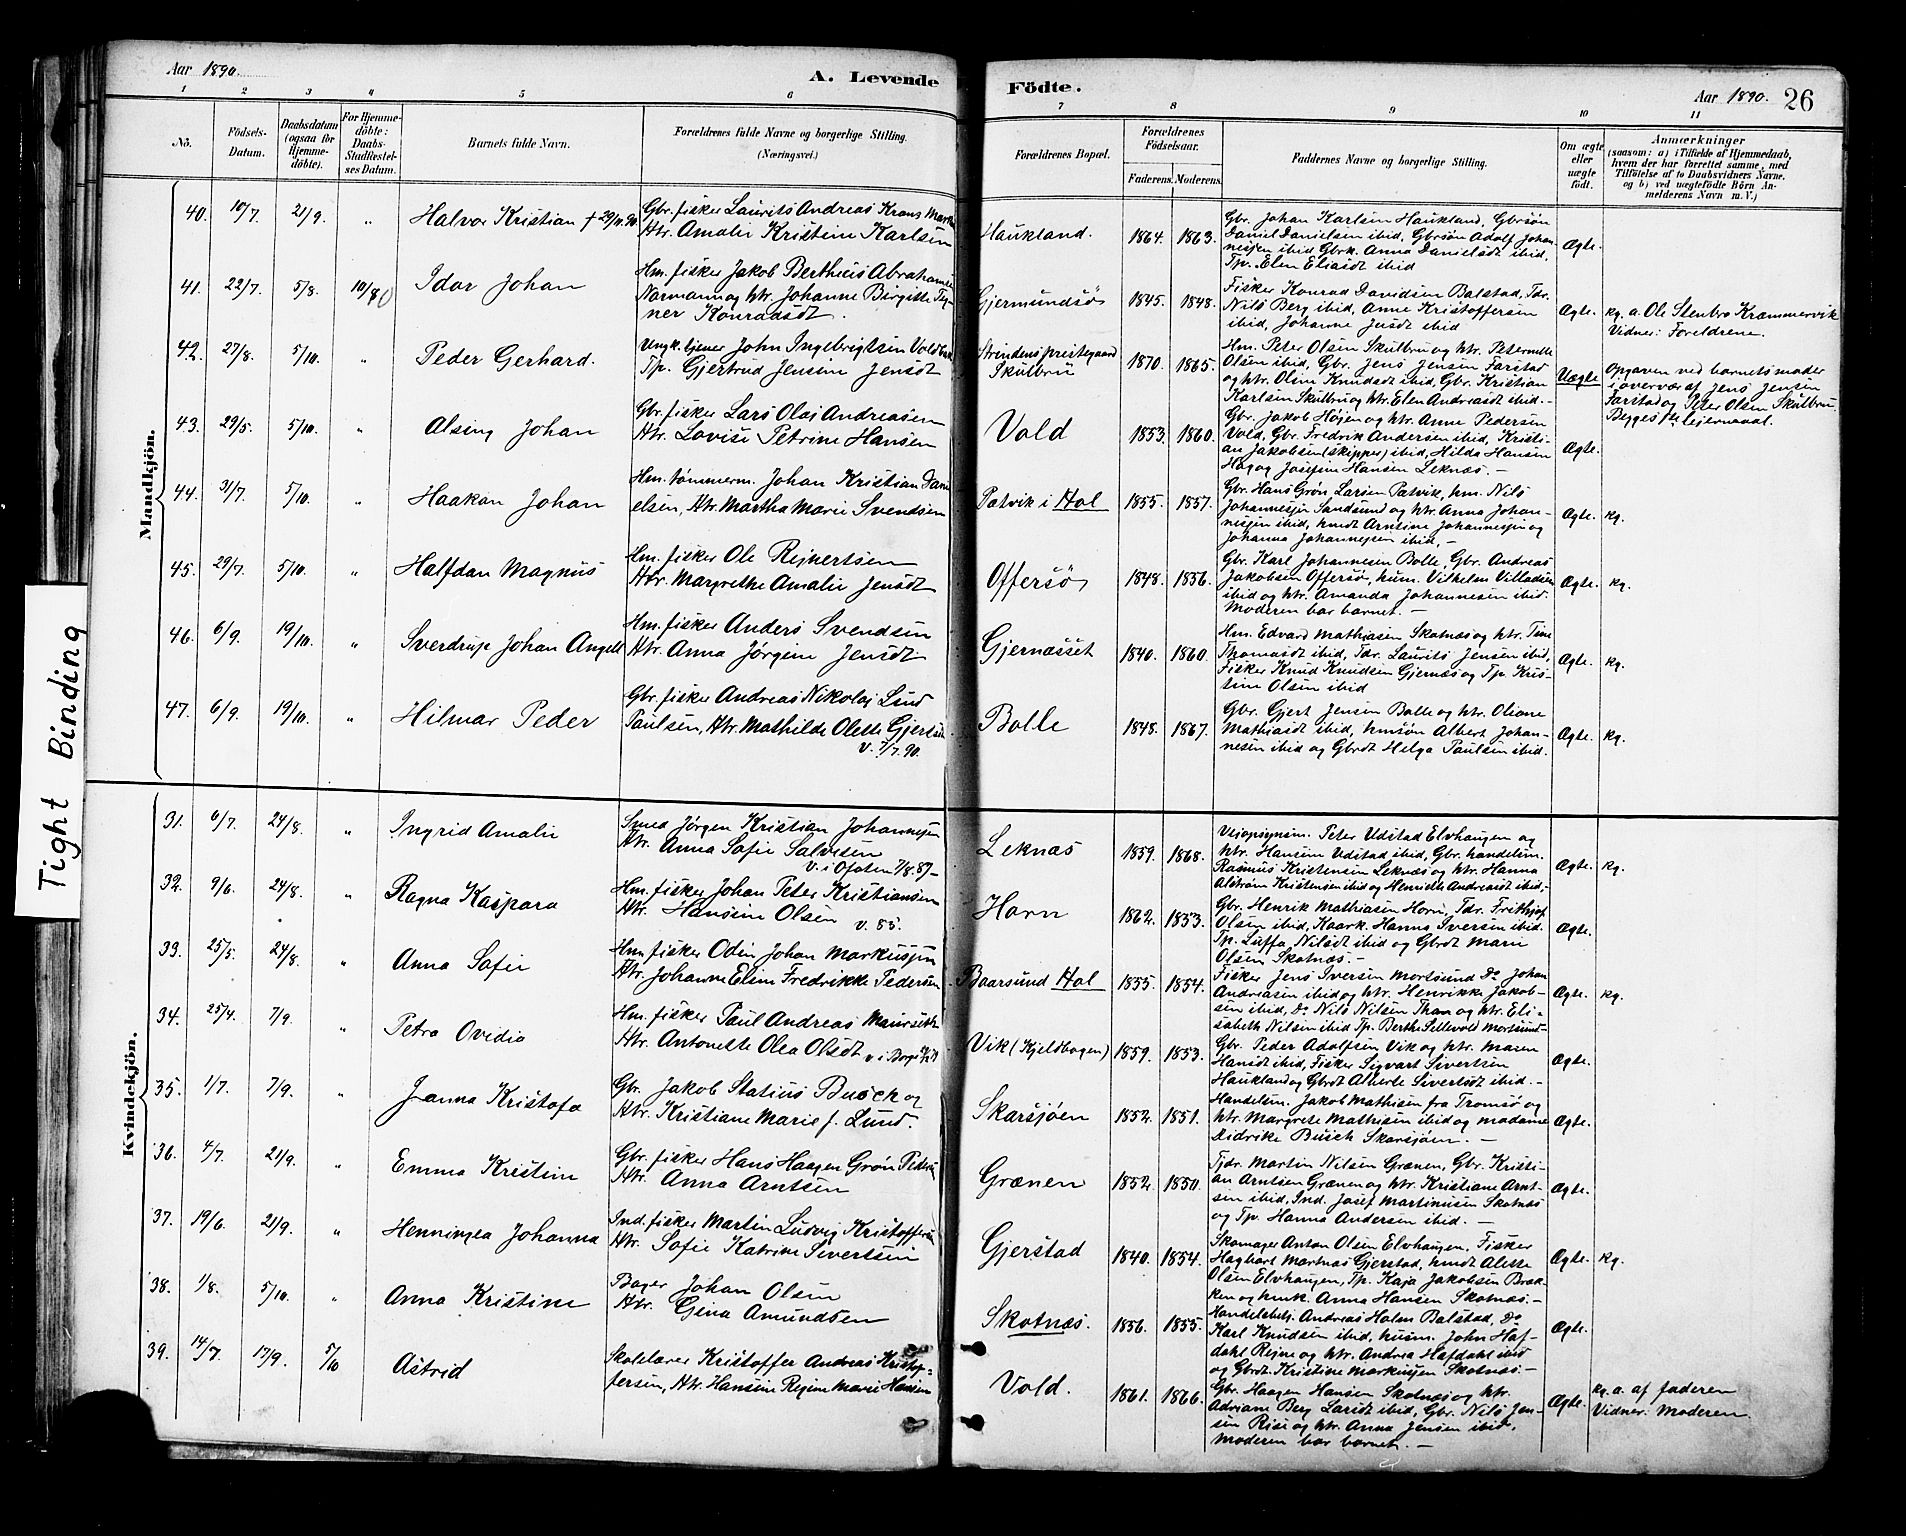 Aar 1890.
A. Levende
Födte.
Aar 1890. 26
1 2 3 4 5 6 7 8 9 10 11
No.
Födsels-
Datum.
Daabsdatum
(ogsaa for
Hjemme-
döbte).
For Hjemme-
döbte:
Daabs-
Stadfestel-
ses Datum.
Barnets fulde Navn.
Forældrenes fulde Navne og borgerlige Stilling.
(Næringsvei.)
Forældrenes Bopæl.
Forældrenes
Födselsaar.
Faderens. Moderens.
Faddernes Navne og borgerlige Stilling.
Om ægte
eller
uægte
födt.
Anmærkninger
(saasom: a) i Tilfælde af Hjemmedaab,
hvem der har forrettet samme, med
Tilföielse af to Daabsvidners Navne,
og b) ved uægtefödte Börn An-
melderens Navn m. V.)
Mandkjön.
40. 10/7. 21/9. " Halvor Kristian † 29/11.90
Gbr. fisker Laurits Andreas Krans
Htr. Amalie Kristine Karlsen
Haukland. 1864. 1863.
Gbr. Johan Karlsen Haukland, Gbrsøn
Daniel Danielsen ibid, Gbrsøn Adolf Johan-
nesjen ibid Gbrk. Anna Danielsdt ibid,
Tp. Elen Eliasdt ibid
Ægte.
41. 22/7. 5/8. 10/8 Idar Johan
Hm. fisker Jakob Berthius Abrahamsen
Normann og htr. Johanne Birgitte Teg-
ner Konradsdt.
Gjermundsø 1845. 1848.
Fisker Konrad Davidsen Balstad, Tdr.
Nils Berg ibid, Anne Kristoffersen
ibid, Johanne Jensdt ibid
Ægte.
kg. a. Ole Stenbro Kræmmervik
Vidner: Foreldrene.
42. 27/8. 5/10. " Peder Gerhard.
Ungk. tjener John Ingebrigtsen
Tp. Gjertrud Jensine Jensdt
Strindens prestegaard
Skulbru 1870. 1865.
Hm. Peter Olsen Skulbru og htr. Peternelle
Olsen ibid, Gbr. Jens Jensen Farstad
og htr. Oline Knudsdt ibid, Gbr. Kristian
Karlsen Skulbru og htr. Elen Andreasdt ibid.-
Uægte
Opgaven ved barnets moder
i overvær af Jens Jensen
Farstad og Peter Olsen Skulbru.
Begges 1ste lejermaal.
43. 29/5. 5/10. " Alsing Johan
Gbr. fisker Lars Olaj Andreasen
Htr. Lovise Petrine Hansen
Vold 1853. 1860.
Gbr. Jakob Højen og htr. Anne Pedersen
Vold, Gbr. Fredrik Andersen ibid, Kristi-
an Jakobsen (skipper) ibid, Hilda Hansen
Hag og Josefine Hansen Leknæs.-
Ægte.
44. 31/7. 5/10. " Haakon Johan
Hm. tømmerm. Johan Kristian Dani
elsen, Htr. Martha Marie Svendsen
Petvik i Hol 1855. 1857.
Gbr. Hans Grøn Larsen Petvik, hm. Nils
Johannesjen Sandsund og htr. Anna Johan-
nesjen ibid, hmdt Arntine Johannesjen og
Johanna Johannesen ibid.-
Ægte. kg.
45. 29/7. 5/10. " Halfdan Magnus
Hm. fisker Ole Rejnertsen
Htr. Margrethe Amalie Jensdt
Offersø 1848. 1856.
Gbr. Karl Johannesen Bolle, Gbr. Andreas
Jakobsen Offersø, hm. Vilhelm Villadsen
ibid og htr. Amanda Johannesen ibid.
Moderen bar barnet.-
Ægte. kg.
46. 6/9. 19/10. " Sverdrup Johan Angell
Hm. fisker Anders Svendsen
Htr. Anna Jørgine Jensdt
Gjernæsset 1840. 1860.
Hm. Edvard Mathiasen Skotnæs og htr. Tine
Thomasdt ibid, Tdr. Laurits Jensen ibid,
Fisker Knud Knudsen Gjernæs og Tp. Kris-
tine Olsen ibid
Ægte. kg.
47. 6/9. 19/10. " Hilmar Peder
Gbr. fisker Andreas Nikolaj Lund
Paulsen, Htr. Mathilde Olette
v. 7/7.90.
Bolle 1848. 1867.
Gbr. Gjert Jensen Bolle og htr. Oliane
Mathiasdt ibid, hmsøn Albert Johan-
nesen ibid og Gbrdt Helga Paulsen ibid.
Ægte. kg.
Kvindekjön.
31. 6/7. 24/8. " Ingrid Amalie
Smed Jørgen Kristian Johannesjen
Htr. Anna Sofie Salvesen
v. i Ofoten 7/8.87-
Leknæs 1859. 1868.
Veiopsynsm. Peter Udstad Elvhaugen og
htr. Hansine Udstad ibid, Gbr. handelsm.
Rasmus Kristensen Leknæs og htr. Hanna
Alstrøm Kristensen ibid og Henrikke Andreasdt ibid,-
Ægte. kg.
32. 9/6. 24/8. " Ragna Kaspara
Hm. fisker Johan Peter Kristiansen
Htr. Hansine Olsen v. 85.
Horn 1862. 1853.
Gbr. Henrik Mathiasen Horn, Tdr. Frithjof
Olsen ibid, Kaark. Hanna Iversen ibid.
Tp. Luffa Nilsdt ibid og Gbrdt Marie
Olsen Skotnæs.-
Ægte.
33. 25/5. 24/8. " Anna Sofie
Hm. fisker Odin Johan Markussen
Htr. Johanne Eline Fredrikke Pedersen
Baarsund Hol 1855. 1854.
Fisker Jens Iversen Mortsund Do Johan
Andreasen ibid og htr. Henrikke Jakob-
sen ibid, Do Nils Nilsen Than og htr. Eli-
sabeth Nilsen ibid Tp. Berthe Sellevold Mortsund-
Ægte. kg.
34. 25/4. 7/9. " Petra Ovidia
Hm. fisker Paul Andreas
Htr. Antonette Olea Olsdt v. i Borge
Vik (Kjeldbogen) 1859. 1853.
Gbr. Peder Adolfsen Vik og htr. Maren
Hansdt ibid, Fisker Sigvart Sivertsen
Haukland og Gbrdt Alberte Sivertsdt ibid.-
Ægte.
35. 1/7. 7/9. " Janna Kristofa
Gbr. Jakob Statius Busch og
Htr. Kristiane Marie f. Lund.
Skarsjøen 1852. 1851.
Handelsm. Jakob Mathisen fra Tromsø og
htr. Margrete Mathisen ibid og madame
Didrike Busch Skarsjøen.-
Ægte.
36. 4/7. 21/9. " Emma Kristine
Gbr. fisker Hans Haagen Grøn
Htr. Anna Arntsen
Grænen 1852. 1850.
Tjdr. Martin Nilsen Grænen, Gbr. Kristi-
an Arntsen Grænen og htr. Kristiane Arnt-
sen ibid, Ind. Josef Martinusen Skotnæs
og Tp. Hanna Andersen ibid.-
Ægte.
37. 19/6. 21/9. " Henningea Johanna
Ind. fisker Martin Ludvig Kristoffersen
Htr. Sofie Katrine Sivertsen
Gjerstad 1840. 1854.
Skomager Anton Olsen Elvhaugen, Fisker
Hagbart Martnas Gjerstad, hmdt Alette
Olsen Elvhaugen, Tp. Kaja Jakobsen Brak-
ken og hmk. Anna Hansen Skotnæs.-
Ægte. kg.
38. 1/8. 5/10. " Anna Kristine
Bager Johan Olsen
Htr. Gina Amundsen
Skotnæs. 1856. 1855.
Handelsbetj. Andreas Holen Balstad, Do
Karl Knudsen ibid, husm. John Haf-
dahl Rejne og htr. Andrea Hafdahl ibid
og Gbrdt. Kristine Markusjen Skotnæs.-
Ægte.
39. 14/7. 17/9. 5/10 Astrid
Skolelærer Kristoffer Andreas Kristof-
fersen, Htr. Hansine Regine Marie Hansen
Vold. 1861. 1866.
Gbr. Haagen Hansen Skotnæs og htr.
Adriane Berg Larsdt ibid, Gbr. Nils Jen-
sen Rise og htr. Anna Jensen ibid,
moderen bar barnet.-
Ægte.
kg. a. af faderen
Vidner: Moderen
Tight Binding